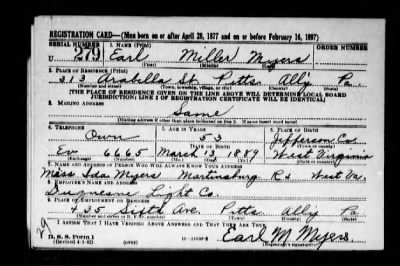 REGISTRATION CARD—(Men born on or after April 28, 1877 and on or before February 16, 1897)
SERIAL NUMBER 1. NAME (Print) ORDER NUMBER
U 279 Earl Miller Myers
(First) (Middle) (Last)
2. PLACE OF RESIDENCE (Print)
313 Arabella St. Pitts Ally Pa.
(Number and street) (Town, township, village, or city) (County) (State)
[THE PLACE OF RESIDENCE GIVEN ON THE LINE ABOVE WILL DETERMINE LOCAL BOARD
JURISDICTION; LINE 2 OF REGISTRATION CERTIFICATE WILL BE IDENTICAL]
3. MAILING ADDRESS
Same
[Mailing address if other than place indicated on line 2. If same insert word same]
4. TELEPHONE 5. AGE IN YEARS 6. PLACE OF BIRTH
Own 53 Jefferson Co
DATE OF BIRTH
Ev 6665 March 1889 West Virginia
(Exchange) (Number) (Mo.) (Day) (Yr.) (State or country)
7. NAME AND ADDRESS OF PERSON WHO WILL ALWAYS KNOW YOUR ADDRESS
Miss Ida Myers Martinsburg West Va.
8. EMPLOYER'S NAME AND ADDRESS
Duquesne Light Co.
9. PLACE OF EMPLOYMENT OR BUSINESS
435 Sixth Ave. Pitts Ally Pa
(Number and street or R. F. D. number) (Town) (County) (State)
I AFFIRM THAT I HAVE VERIFIED ABOVE ANSWERS AND THAT THEY ARE TRUE.
D. S. S. Form 1
(Revised 4-1-42) (over) Earl M Myers
(Registrant's signature)